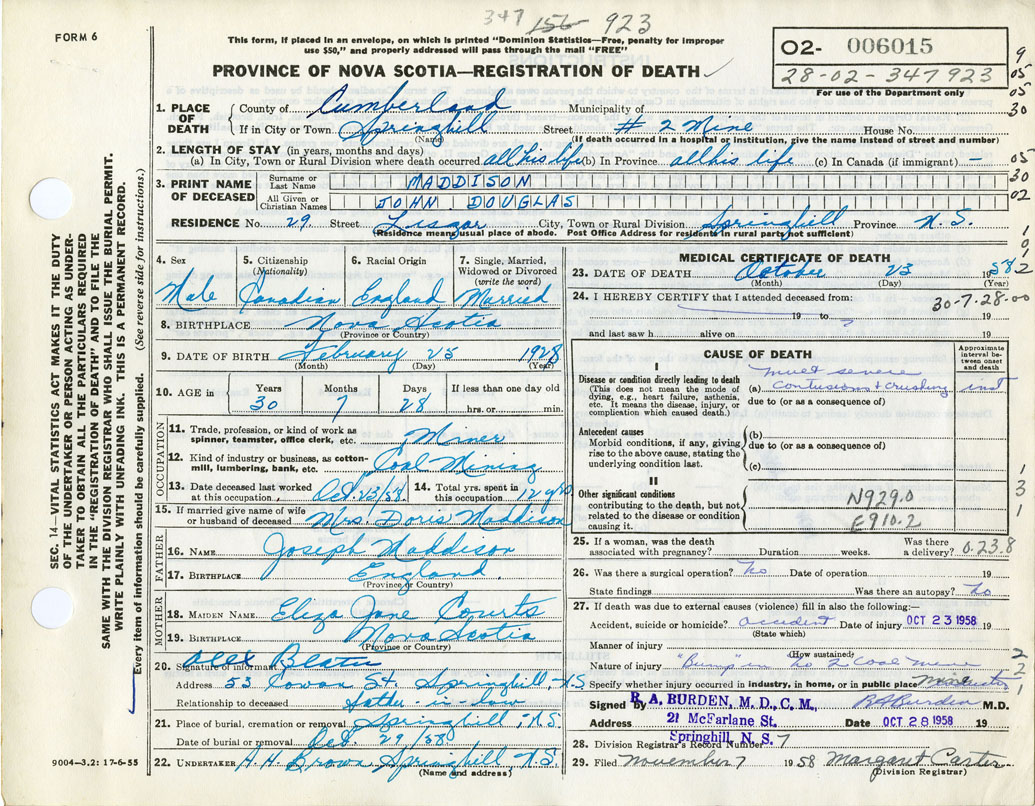 347 156 923
FORM 6
This form, if placed in an envelope, on which is printed "Dominion Statistics—Free, penalty for improper
use $50," and properly addressed will pass through the mail "FREE"
PROVINCE OF NOVA SCOTIA—REGISTRATION OF DEATH
O2- 006015
28-02-347923
For use of the Department only
9
05
05
30
1. PLACE OF DEATH { County of Cumberland Municipality of
If in City or Town Springhill Street #2 Mine House No.
(Name) (If death occurred in a hospital or institution, give the name instead of street and number)
2. LENGTH OF STAY (in years, months and days)
(a) In City, Town or Rural Division where death occurred all his life (b) In Province all his life (c) In Canada (if immigrant) —
05
3. PRINT NAME OF DECEASED { Surname or Last Name MADDISON
30
All Given or Christian Names JOHN DOUGLAS
02
RESIDENCE No. 29. Street Lisgar City, Town or Rural Division Springhill Province N.S.
(Residence means usual place of abode. Post Office Address for residents in rural parts not sufficient)
1
0
1
2
SEC. 14—VITAL STATISTICS ACT MAKES IT THE DUTY
OF THE UNDERTAKER OR PERSON ACTING AS UNDER-
TAKER TO OBTAIN ALL THE PARTICULARS REQUIRED
IN THE "REGISTRATION OF DEATH" AND TO FILE THE
SAME WITH THE DIVISION REGISTRAR WHO SHALL ISSUE THE BURIAL PERMIT.
WRITE PLAINLY WITH UNFADING INK. THIS IS A PERMANENT RECORD.
Every item of information should be carefully supplied. (See reverse side for instructions.)
4. Sex
Male
5. Citizenship
(Nationality)
Canadian
6. Racial Origin
England
7. Single, Married,
Widowed or Divorced
(write the word)
Married
8. BIRTHPLACE Nova Scotia
(Province or Country)
9. DATE OF BIRTH February 25 1928
(Month) (Day) (Year)
10. AGE in Years 30 Months 7 Days 28 If less than one day old
hrs. or min.
OCCUPATION
11. Trade, profession, or kind of work as
spinner, teamster, office clerk, etc. Miner
12. Kind of industry or business, as cotton-
mill, lumbering, bank, etc. Coal Mining
13. Date deceased last worked
at this occupation. Oct. 23/58 14. Total yrs. spent in
this occupation 12 yrs
15. If married give name of wife
or husband of deceased Mrs. Doris Maddison
FATHER
16. NAME Joseph Maddison
17. BIRTHPLACE England
(Province or Country)
MOTHER
18. MAIDEN NAME Eliza Jane Courts
19. BIRTHPLACE Nova Scotia
(Province or Country)
20. Signature of informant Alex Beaton
Address 53 Cowan St. Springhill, N.S.
Relationship to deceased father-in-law
21. Place of burial, cremation or removal Springhill N.S.
Date of burial or removal Oct. 29/58
22. UNDERTAKER H. H. Brown Springhill N.S.
(Name and address)
9004—3.2: 17-6-55
MEDICAL CERTIFICATE OF DEATH
23. DATE OF DEATH October 23 1958
(Month) (Day) (Year)
24. I HEREBY CERTIFY that I attended deceased from:
30-7-28-00
19 to 19
and last saw h alive on 19
CAUSE OF DEATH
Approximate
interval be-
tween onset
and death
I
Disease or condition directly leading to death
(This does not mean the mode of
dying, e.g., heart failure, asthenia,
etc. It means the disease, injury, or
complication which caused death.)
(a) mult severe
contusions + crushing inst
due to (or as a consequence of)
Antecedent causes
Morbid conditions, if any, giving
rise to the above cause, stating the
underlying condition last.
(b)
due to (or as a consequence of)
(c)
II
Other significant conditions
contributing to the death, but not
related to the disease or condition
causing it.
N929.0
E910.2
1
3
1
25. If a woman, was the death
associated with pregnancy? Duration weeks. Was there
a delivery? 0.23.8
26. Was there a surgical operation? no Date of operation 19
State findings Was there an autopsy? no
27. If death was due to external causes (violence) fill in also the following:—
Accident, suicide or homicide? accident Date of injury OCT 23 1958
(State which)
Manner of injury
(How sustained)
Nature of injury "Bump" in no 2 coal mine
2
2
1
Specify whether injury occurred in industry, in home, or in public place industry
Signed by R. A. BURDEN, M. D., C. M., RA Burden M.D.
Address 21 McFarlane St. Date OCT 28 1958 19
Springhill, N. S.
28. Division Registrar's Record Number 7
29. Filed November 7 1958 Margaret Carter
(Division Registrar)